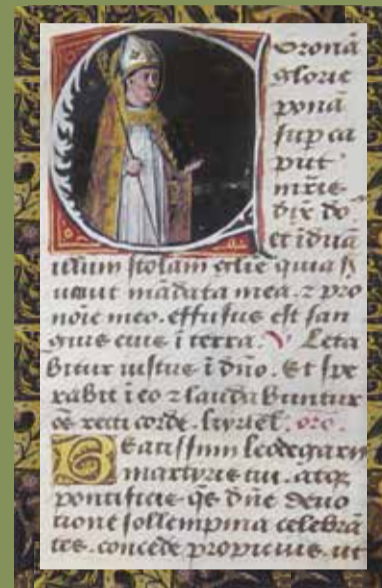 Coronā
glorie
ponā
sup ca
put
mr̄ie
dix do
et iduā
illum stolam glīe quia ſ
uauit mādata mea. ⁊ pro
noīe meo. effusus est san
guis eius ī terra. ℣ Leta
bitur iustus ī dn̄o. Et spe
rabit ī eo ⁊ lauda buntur
os̄ recti corde. kyriel. oro.
Beatissimi leodegarii
martyris tui. atq̨
pontificis. q̄s dn̄e deuo
tione sollempnia celebrā
tes. concede propicius. ut